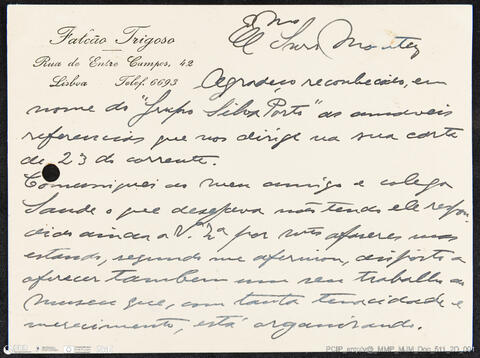 Falcão Trigoso
Rua de Entre Campos, 42
Lisboa Telef. 6693
Exmo
Snr. Montez
Agradeço reconhecido, em
nome do "Grupo Silva Porto" as amaveis
referencias que nos dirige na sua carta
de 23 do corrente.
Comuniquei ao meu amigo e colega
Saude o que desejava não tendo ele respon-
dido ainda a V. Exa por afazeres mas
estando, segundo me afirmou, disposto a
oferecer tambem um seu trabalho ao
museu que, com tanta tenacidade e
merecimento, está organizando.
PCIP_ MMP_MJM_Doc_511_2D_